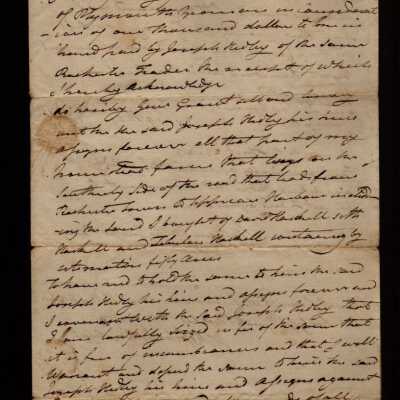 of Plymouth Yeoman in considerat
ion of one thousand dollars to me in
hand paid by Joseph of the same
Rochester Trader the receipt of which
I hereby acknowledge
do hereby Give Grant sell and convey
unto the said Joseph his heirs
assigns forever all that part of my
homestead farm that lies on the
Southerly Side of the road that leads from
Rochester town to Harbour includ-
ing the land I bought of David Haskell Seth
Haskell and Haskell containing by
estimation fifty Acres
to have and to hold the same to him the said
Joseph his heirs and assigns forever and
I covenant with the said Joseph that
I am lawfully Seized in fee of the same that
it is free of incumbrances and that I will
Warrant and defend the same to him the said
Joseph his heirs and assigns against
of all